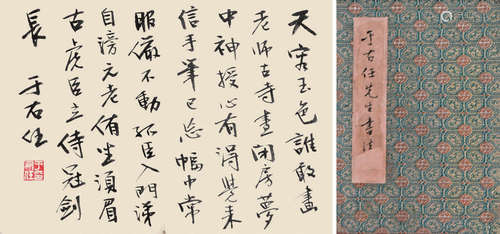 天容玉色誰敢畫
老師古寺晝閉房夢
中神授心有得覺來
信手筆已忘幅巾常
服儼不動孤臣入門涕
自滂元老侑坐須眉
古虎臣立侍冠劍
長 于右任
于右任先生書法